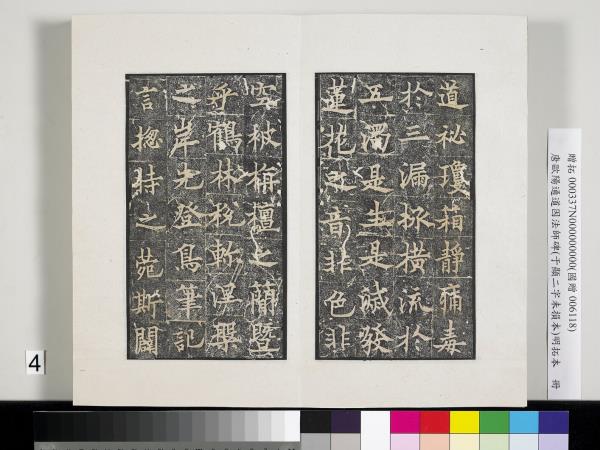 道祕瓊箱靜彌毒
於三漏拯橫流於
五濁是生是滅發
蓮花之音非色非
空被栴檀之簡曁
乎鶴林稅
之岸先登鳥筆記
言揔持之苑斯闢
贈拓 000337N000000000(國贈 006118)
唐歐陽通道因法師碑(于顯二字未損本)明拓本 冊
4